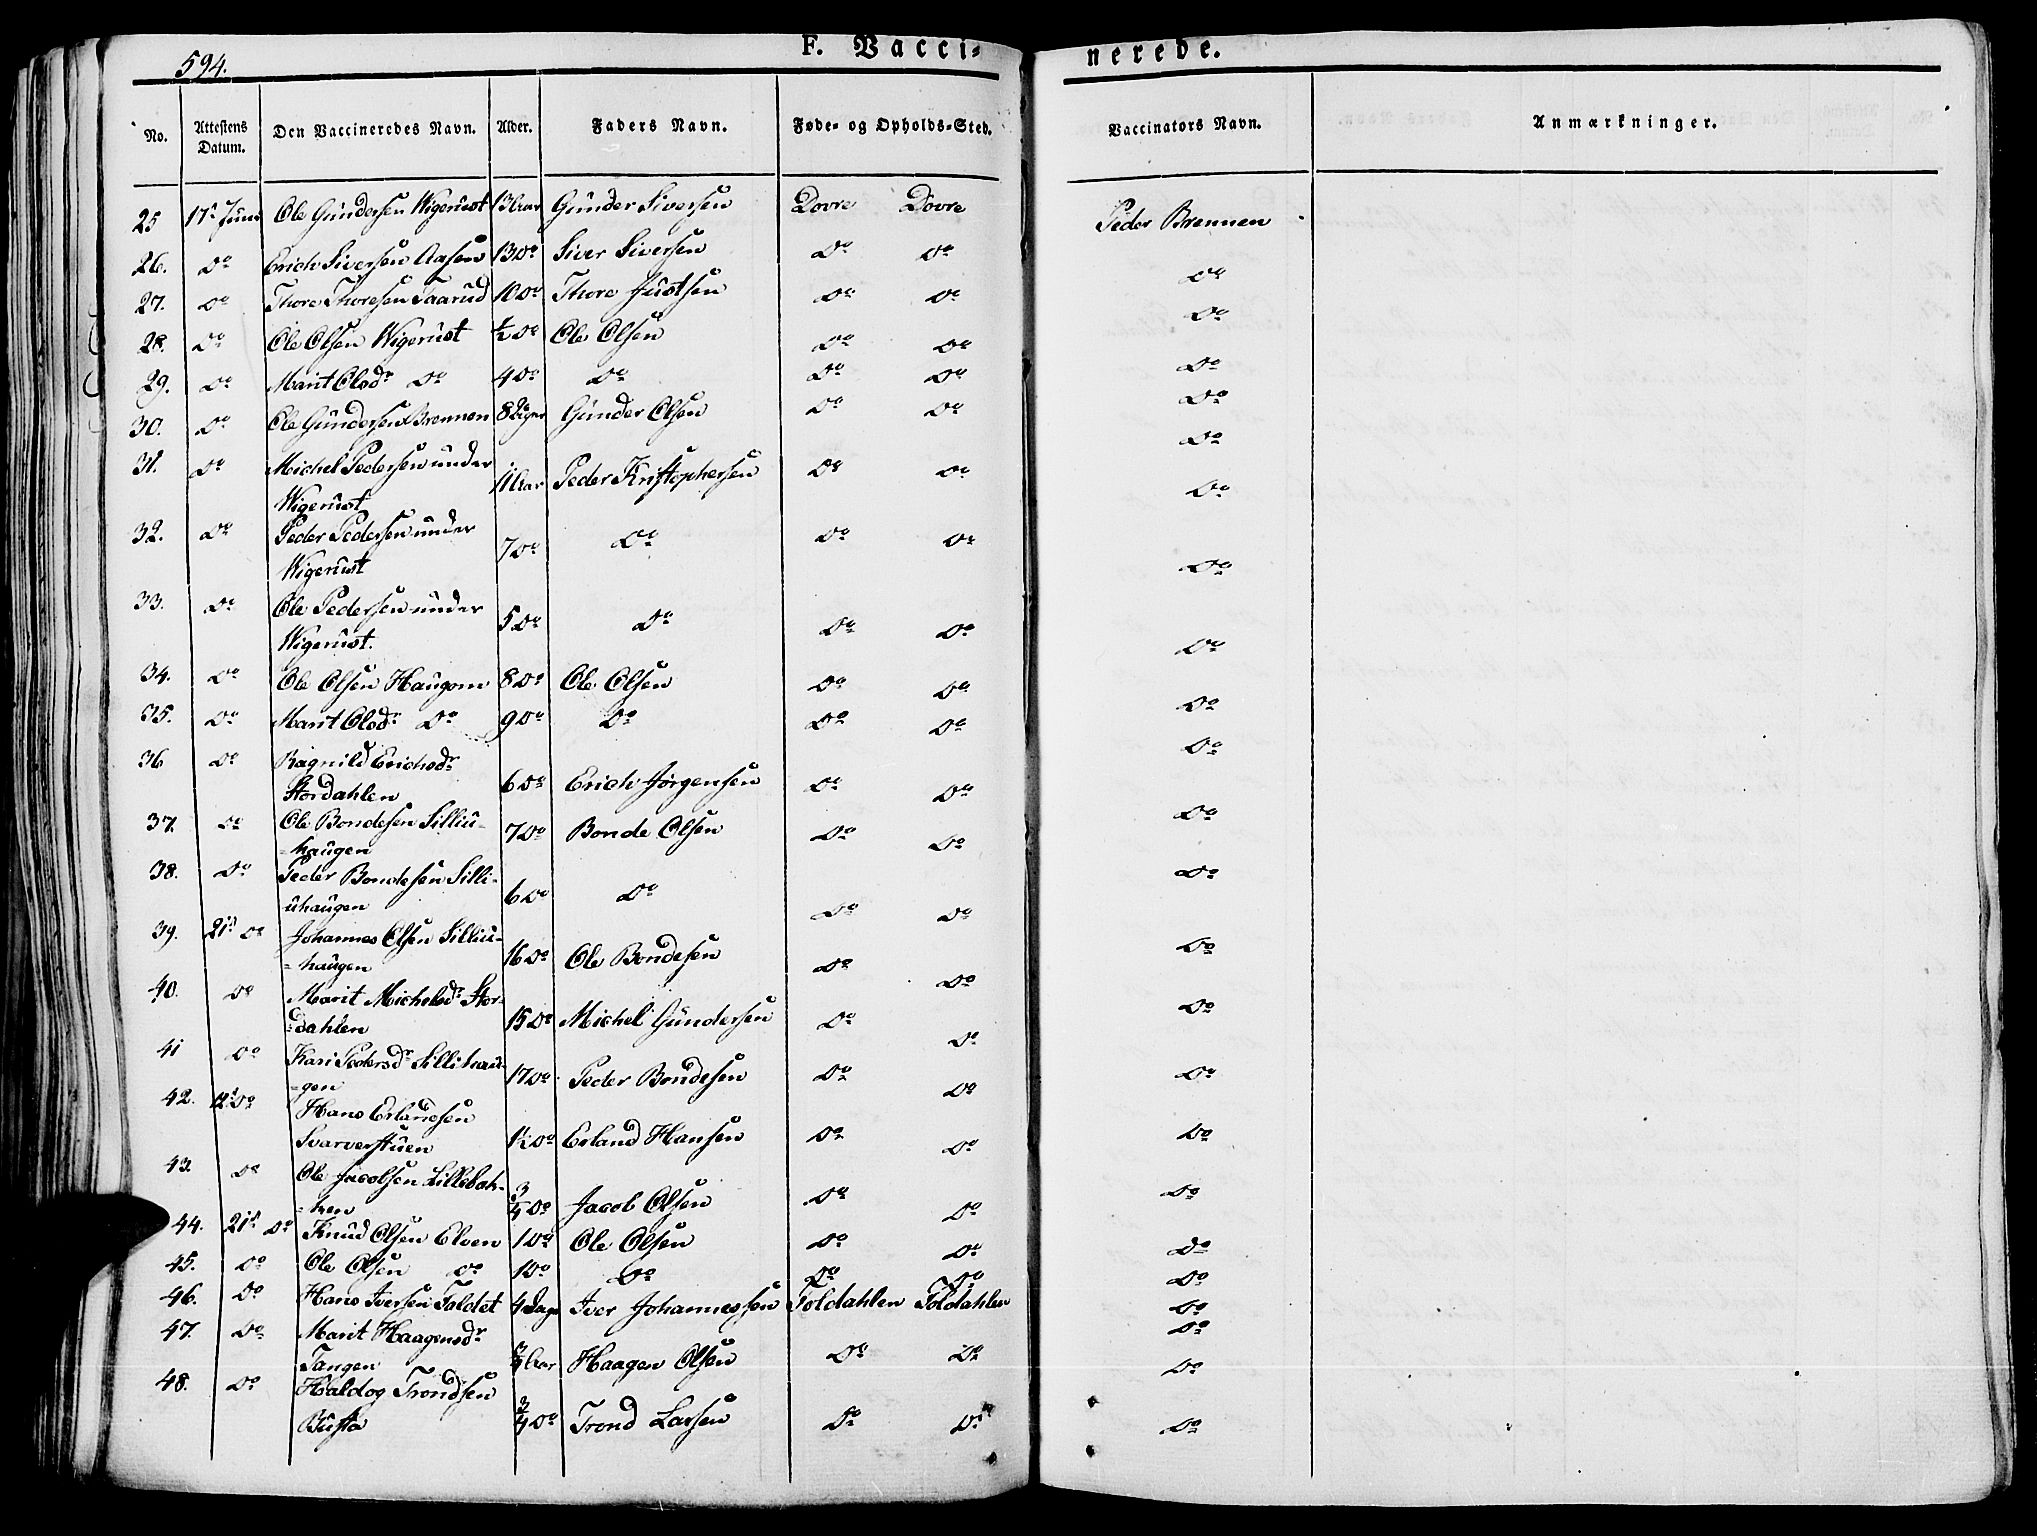 594.
F. Vacci- nerede.
No. Attestens Datum. Den Vaccineredes Navn. Alder. Faders Navn. Føde- og Opholds-Sted. Vaccinators Navn. Anmærkninger.
25 17de Juni Ole Gundersen Wigerust 13 Aar Gunder Siversen Dovre Dovre Peder Brennen
26. Do Erich Siversen Aasen 13 Do Siver Siversen Do Do Do
27. Do Thore Thoresen Taarud 10 Do Thore Justsen Do Do Do
28. Do Ole Olsen Wigerust ½ Do Ole Olsen Do Do Do
29. Do Marit Olsdr Do 4 Do Do Do Do Do
30. Do Ole Gundersen Brennen 8 Uger Gunder Olsen Do Do Do
31. Do Michel Pedersen under
Wigerust 11 Aar Peder Kristophersen Do Do Do
32. Do Peder Pedersen under
Wigerust 7 Do Do Do Do Do
33. Do Ole Pedersen under
Wigerust. 5 Do Do Do Do Do
34. Do Ole Olsen Haugom 8 Do Ole Olsen Do Do Do
35. Do Marit Olsdr Do 9 Do Do Do Do Do
36 Do Ragnild Erichsdr
Stordahlen 6 Do Erich Jørgensen Do Do Do
37. Do Ole Bondesen Silliu-
-haugen 7 Do Bonde Olsen Do Do Do
38. Do Peder Bondesen Silli-
uhaugen 6 Do Do Do Do Do
39. 21d Do Johannes Olsen Silliu-
-haugen 16 Do Ole Bondesen Do Do Do
40. Do Marit Michelsdr Stor-
-dahlen 15 Do Michel Gundersen Do Do Do
41 Do Kari Pedersdr Sillihau-
-gen 17 Do Peder Bondesen Do Do Do
42. 12d Do Hans Erlandsen
Svarverstuen 1½ Do Erland Hansen Do Do Do
43. Do Ole Jacobsen Lillebak-
-ken ¾ Do Jacob Olsen Do Do Do
44. 21d Do Knud Olsen Elven 1 Do Ole Olsen Do Do Do
45. Do Ole Olsen Do 1 Do Do Do Do Do
46. Do Hans Iversen Toldet 4 Dage Iver Johannessen Foldahlen Foldahlen Do
47. Do Marit Haagensdr
Tangen ¾ Aar Haagen Olsen Do Do Do
48. Do Haldog Trondsen
Busta ¾ Do Trond Larsen Do Do Do